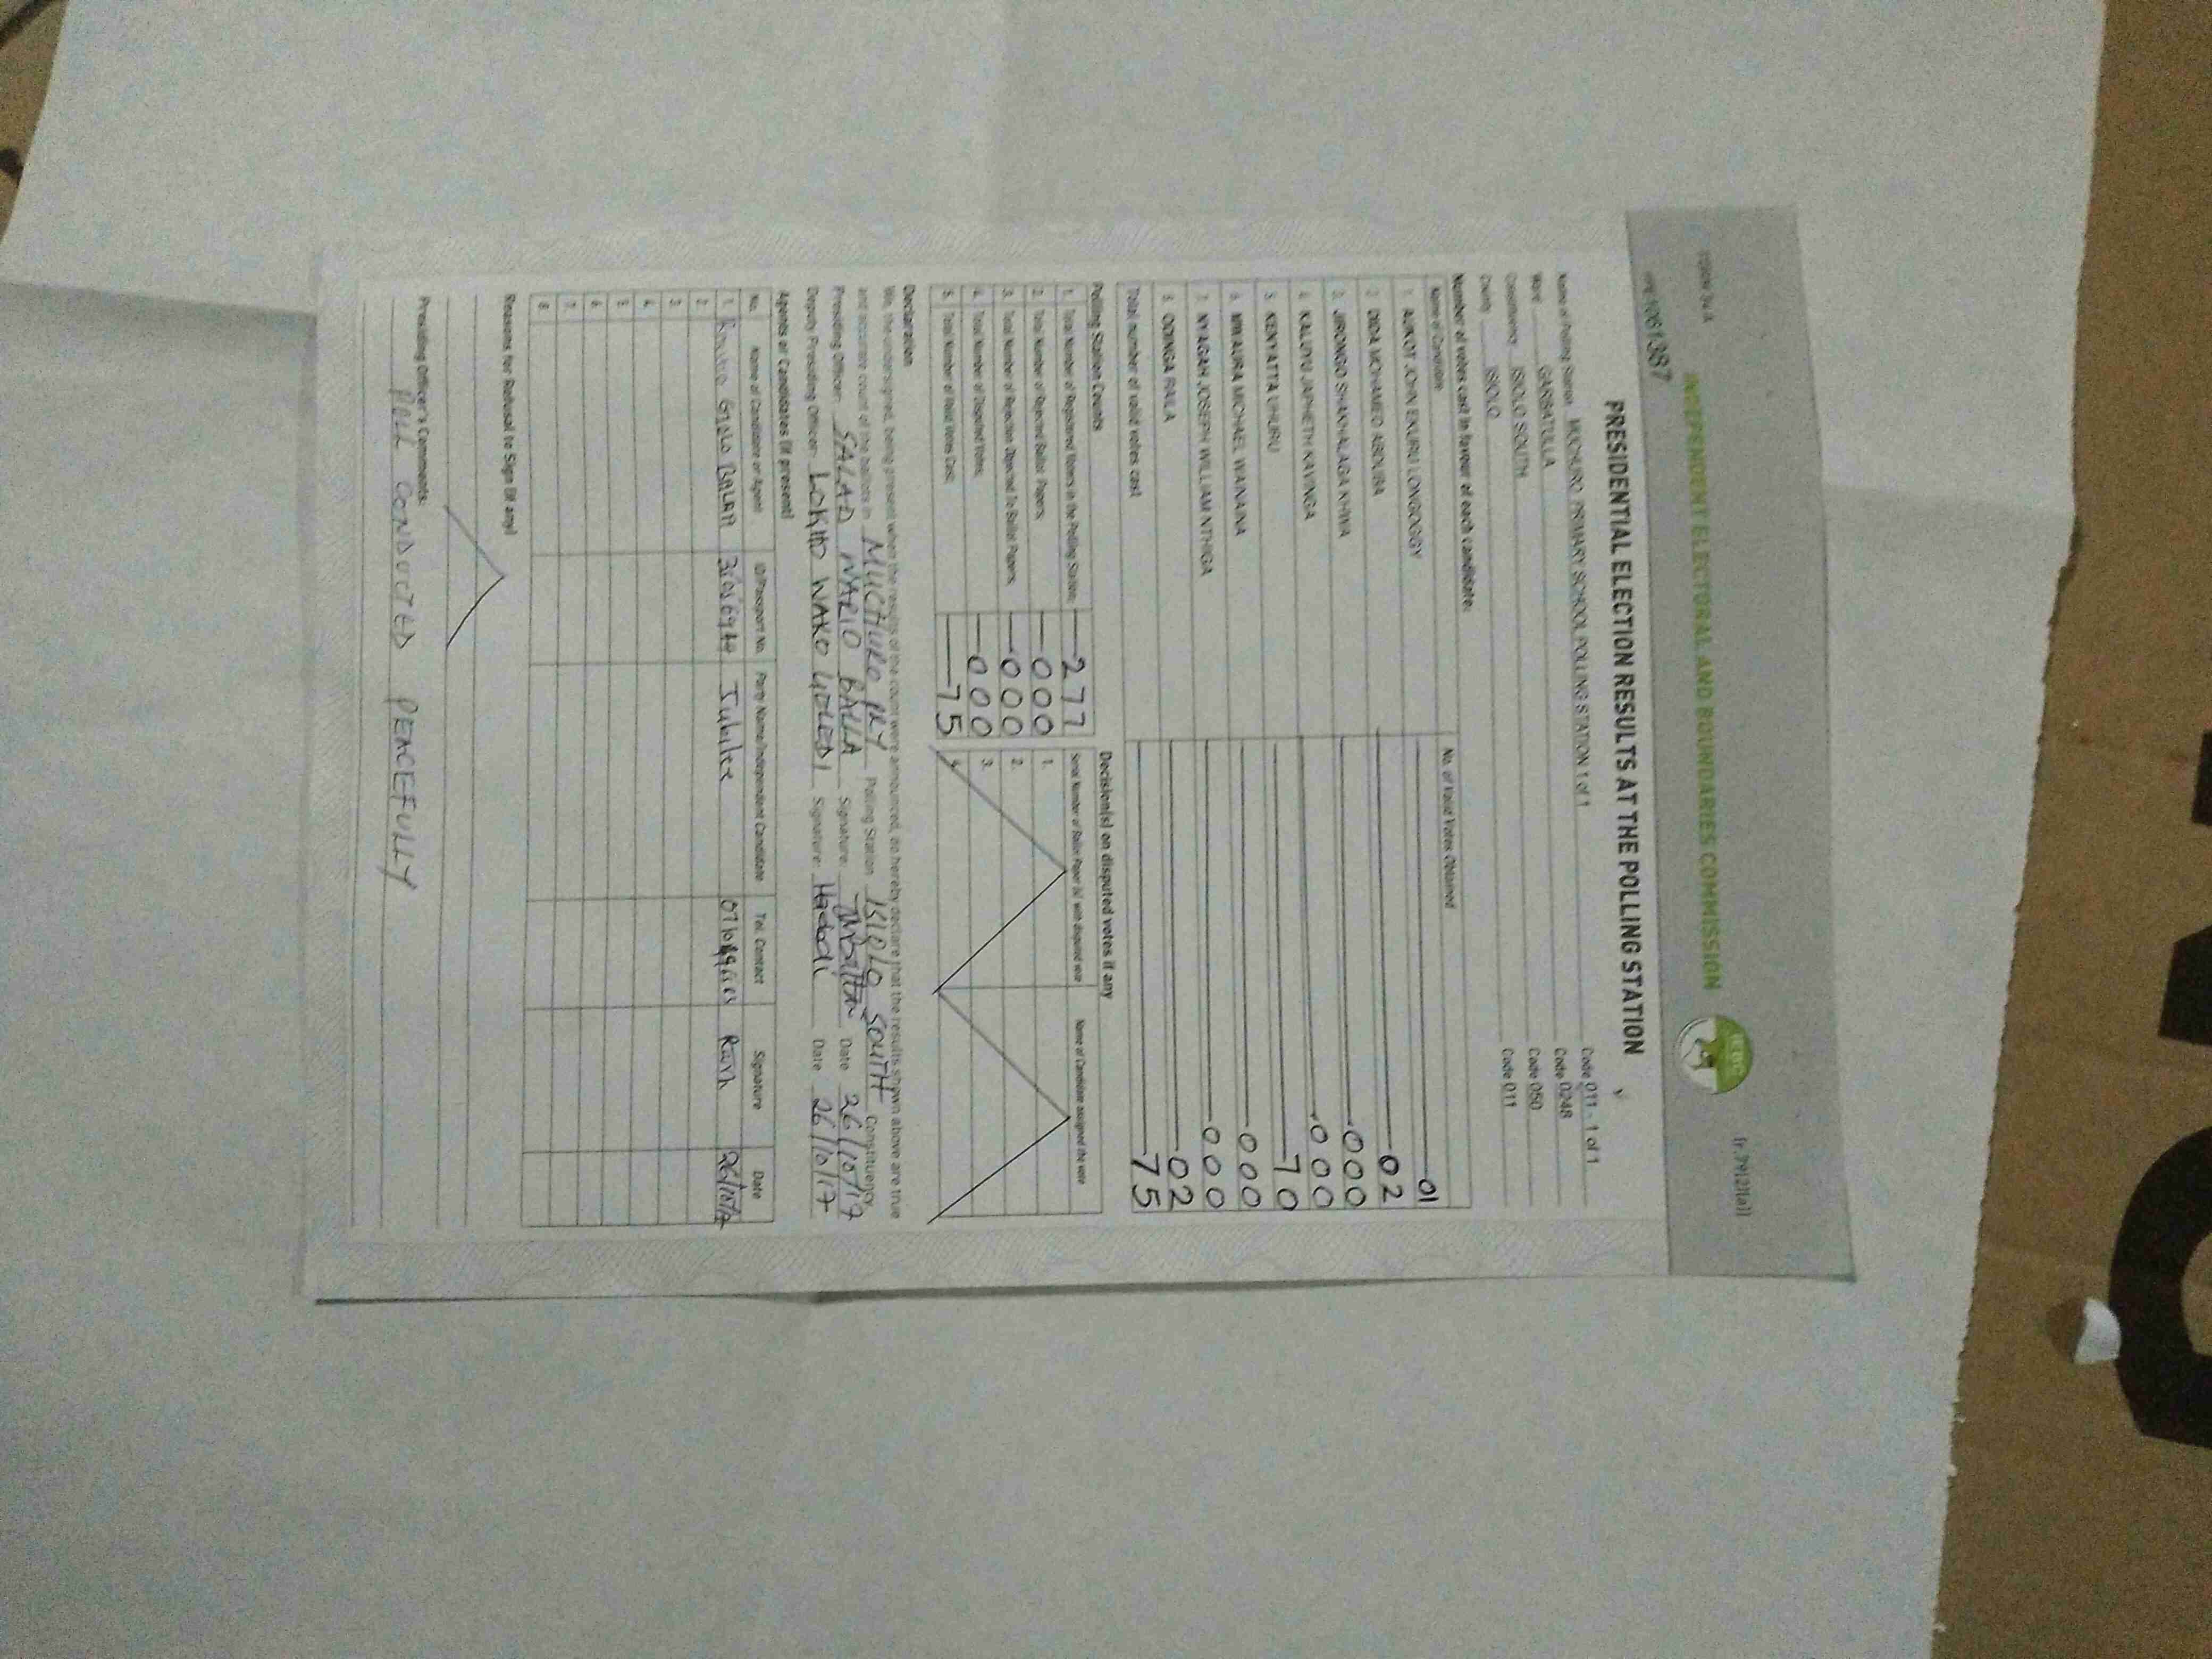 FORM 34 A
r. 79(2)(a)
INDEPENDENT ELECTORAL AND BOUNDARIES COMMISSION
IEBC
1061387
PRESIDENTIAL ELECTION RESULTS AT THE POLLING STATION
Name of Polling Station MUCHURO PRIMARY SCHOOL POLLING STATION 1 of 1 Code 011 - 1 of 1
Ward GARBATULLA Code 0248
Constituency ISIOLO SOUTH Code 050
County ISIOLO Code 011
Number of votes cast in favour of each candidate:
Name of Candidate No. of Valid Votes Obtained
1. AUKOT JOHN EKURU LONGOGGY 01
2. DIDA MOHAMED ABDUBA 02
3. JIRONGO SHAKHALAGA KHWA 000
4. KALUYU JAPHETH KAVINGA 000
5. KENYATTA UHURU 70
6. MWAURA MICHAEL WAINAINA 000
7. NYAGAH JOSEPH WILLIAM NTHIGA 000
8. ODINGA RAILA 02
Total number of valid votes cast 75
Polling Station Counts
1. Total Number of Registered Voters in the Polling Station: 277
2. Total Number of Rejected Ballot Papers: 000
3. Total Number of Rejection Objected To Ballot Papers: 000
4. Total Number of Disputed Votes: 000
5. Total Number of Valid Votes Cast: 75
Decision(s) on disputed votes if any
Serial Number of Ballot Paper (s) with disputed vote Name of Candidate assigned the vote
1.
2.
3.
4.
Declaration
We, the undersigned, being present when the results of the count were announced, do hereby declare that the results shown above are true
and accurate count of the ballots in MUCHURO PRY Polling Station ISIOLO SOUTH Constituency
Presiding Officer: SALAD WARIO BALLA Signature: Date 26/10/17
Deputy Presiding Officer: LOKHO WAKO Signature: Date 26/10/17
Agents or Candidates (if present)
No. Name of Candidate or Agent ID/Passport No. Party Name/Independent Candidate Tel. Contact Signature Date
1. Jubilee 26/10/17
2
3
4
5
6
7
8
Reasons for Refusal to Sign (if any)
Presiding Officer's Comments:
POLL CONDUCTED PEACEFULLY